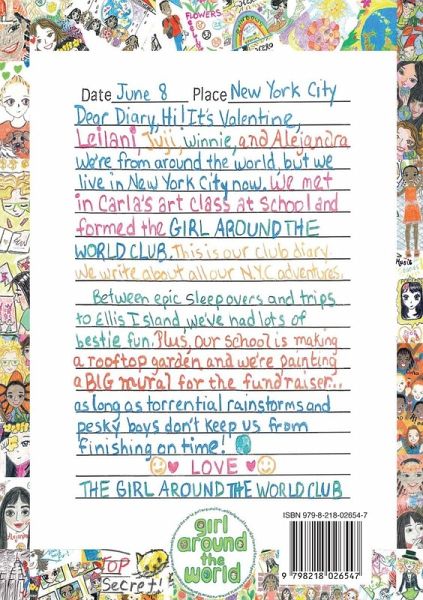 FLOWERS
Date June 8 Place New York City
Dear Diary, Hi! It's Valentine,
Leilani, Juji, Winnie, and Alejandra
We're from around the world, but we
live in New York City now. We met
in Carla's art class at school and
formed the GIRL AROUND THE
WORLD CLUB. This is our club diary
we write about all our N.Y.C. adventures.
Between epic sleepovers and trips
to Ellis Island, we've had lots of
bestie fun. Plus, our school is making
a rooftop garden and we're painting
a BIG mural for the fundraiser...
as long as torrential rainstorms and
pesky boys don't keep us from
finishing on time!
LOVE
THE GIRL AROUND THE WORLD CLUB
ISBN 979-8-218-02654-7
girl
around
the
world
9 798218 026547
TOP
Secret!